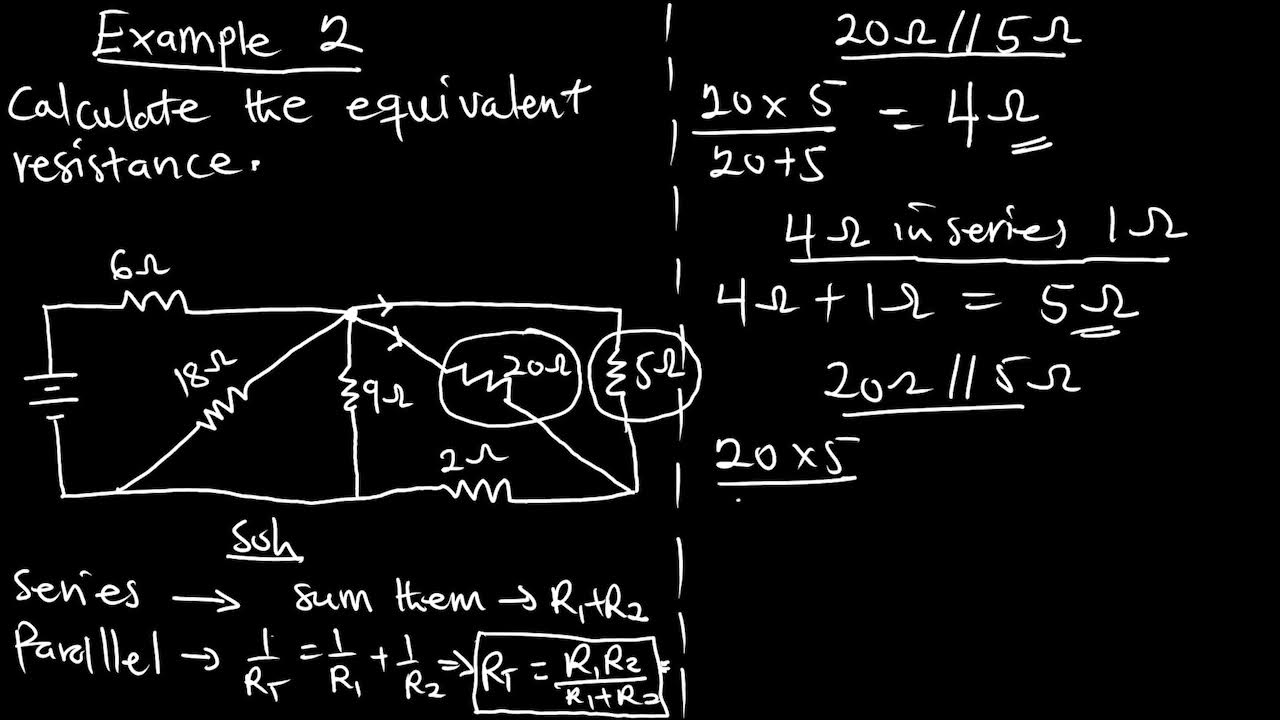 Example 2
Calculate the equivalent
resistance.
6Ω
18Ω
9Ω
20Ω
5Ω
2Ω
Soln
Series → sum them → R₁+R₂
Parallel → 1/R_T = 1/R₁ + 1/R₂ => R_T = R₁R₂/R₁+R₂ =
20Ω // 5Ω
20 x 5 / 20+5 = 4Ω
4Ω in series 1Ω
4Ω + 1Ω = 5Ω
20Ω // 5Ω
20 x 5